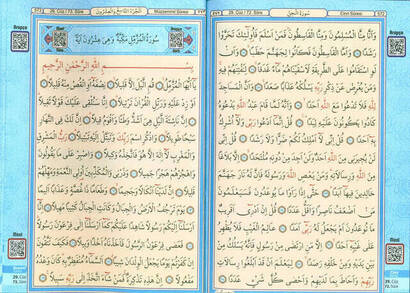 29. Cüz / 72. Sûre
سُورَةُ الْجِنِّ
Cinn Sûresi
572
وَاَنَّا مِنَّا الْمُسْلِمُونَ وَمِنَّا الْقَاسِطُونَ فَمَنْ اَسْلَمَ فَاُولٰٓئِكَ تَحَرَّوْا
رَشَدًا وَاَمَّا الْقَاسِطُونَ فَكَانُوا لِجَهَنَّمَ حَطَبًا وَاَنْ
لَوِ اسْتَقَامُوا عَلَى الطَّرِيقَةِ لَاَسْقَيْنَاهُمْ مَاءً غَدَقًا لِنَفْتِنَهُمْ فِيهِ
وَمَنْ يُعْرِضْ عَنْ ذِكْرِ رَبِّهِ يَسْلُكْهُ عَذَابًا صَعَدًا وَاَنَّ الْمَسَاجِدَ
لِلّٰهِ فَلَا تَدْعُوا مَعَ اللّٰهِ اَحَدًا وَاَنَّهُ لَمَّا قَامَ عَبْدُ اللّٰهِ يَدْعُوهُ
كَادُوا يَكُونُونَ عَلَيْهِ لِبَدًا قُلْ اِنَّمَا اَدْعُوا رَبِّى وَلَا اُشْرِكُ
بِهِ اَحَدًا قُلْ اِنِّى لَا اَمْلِكُ لَكُمْ ضَرًّا وَلَا رَشَدًا قُلْ اِنِّى
لَنْ يُجِيرَنِى مِنَ اللّٰهِ اَحَدٌ وَلَنْ اَجِدَ مِنْ دُونِهِ مُلْتَحَدًا اِلَّا بَلَاغًا
مِنَ اللّٰهِ وَرِسَالَاتِهِ وَمَنْ يَعْصِ اللّٰهَ وَرَسُولَهُ فَاِنَّ لَهُ نَارَ جَهَنَّمَ
خَالِدِينَ فِيهَا اَبَدًا حَتّٰى اِذَا رَاَوْا مَا يُوعَدُونَ فَسَيَعْلَمُونَ
مَنْ اَضْعَفُ نَاصِرًا وَاَقَلُّ عَدَدًا قُلْ اِنْ اَدْرِى اَقَرِيبٌ
مَا تُوعَدُونَ اَمْ يَجْعَلُ لَهُ رَبِّى اَمَدًا عَالِمُ الْغَيْبِ فَلَا يُظْهِرُ
عَلٰى غَيْبِهِ اَحَدًا اِلَّا مَنِ ارْتَضٰى مِنْ رَسُولٍ فَاِنَّهُ يَسْلُكُ مِنْ
بَيْنِ يَدَيْهِ وَمِنْ خَلْفِهِ رَصَدًا لِيَعْلَمَ اَنْ قَدْ اَبْلَغُوا رِسَالَاتِ
رَبِّهِمْ وَاَحَاطَ بِمَا لَدَيْهِمْ وَاَحْصٰى كُلَّ شَيْءٍ عَدَدًا
29. Cüz / 73. Sûre
Müzzemmil Sûresi
سُورَةُ الْمُزَّمِّلِ مَكِّيَّةٌ وَهِىَ عِشْرُونَ اٰيَةً
بِسْمِ اللّٰهِ الرَّحْمٰنِ الرَّحِيمِ
يَا اَيُّهَا الْمُزَّمِّلُ قُمِ الَّيْلَ اِلَّا قَلِيلًا نِصْفَهُ اَوِ انْقُصْ مِنْهُ قَلِيلًا
اَوْ زِدْ عَلَيْهِ وَرَتِّلِ الْقُرْاٰنَ تَرْتِيلًا اِنَّا سَنُلْقِى عَلَيْكَ قَوْلًا ثَقِيلًا
اِنَّ نَاشِئَةَ الَّيْلِ هِىَ اَشَدُّ وَطْئًا وَاَقْوَمُ قِيلًا اِنَّ لَكَ فِى النَّهَارِ
سَبْحًا طَوِيلًا وَاذْكُرِ اسْمَ رَبِّكَ وَتَبَتَّلْ اِلَيْهِ تَبْتِيلًا رَبُّ الْمَشْرِقِ
وَالْمَغْرِبِ لَا اِلٰهَ اِلَّا هُوَ فَاتَّخِذْهُ وَكِيلًا وَاصْبِرْ عَلٰى مَا يَقُولُونَ
وَاهْجُرْهُمْ هَجْرًا جَمِيلًا وَذَرْنِى وَالْمُكَذِّبِينَ اُولِى النَّعْمَةِ وَمَهِّلْهُمْ
قَلِيلًا اِنَّ لَدَيْنَا اَنْكَالًا وَجَحِيمًا وَطَعَامًا ذَا غُصَّةٍ وَعَذَابًا اَلِيمًا
يَوْمَ تَرْجُفُ الْاَرْضُ وَالْجِبَالُ وَكَانَتِ الْجِبَالُ كَثِيبًا مَهِيلًا اِنَّا
اَرْسَلْنَا اِلَيْكُمْ رَسُولًا شَاهِدًا عَلَيْكُمْ كَمَا اَرْسَلْنَا اِلٰى فِرْعَوْنَ رَسُولًا
فَعَصٰى فِرْعَوْنُ الرَّسُولَ فَاَخَذْنَاهُ اَخْذًا وَبِيلًا فَكَيْفَ تَتَّقُونَ
اِنْ كَفَرْتُمْ يَوْمًا يَجْعَلُ الْوِلْدَانَ شِيبًا السَّمَاءُ مُنْفَطِرٌ بِهِ كَانَ وَعْدُهُ
مَفْعُولًا اِنَّ هٰذِهِ تَذْكِرَةٌ فَمَنْ شَاءَ اتَّخَذَ اِلٰى رَبِّهِ سَبِيلًا